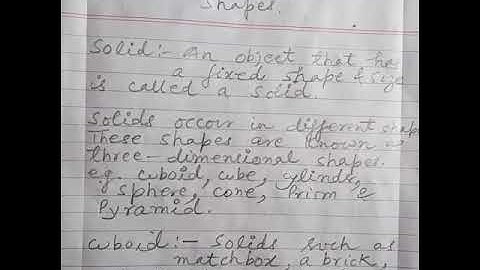 Shapes.
Solid:- An object that ha
a fixed shape & size
is called a solid.
Solids occur in different shap
These shapes are known a
three-dimensional shapes.
e.g. cuboid, cube, cylinder,
sphere, cone, Prism &
Pyramid.
cuboid:- Solids such as
matchbox, a brick,